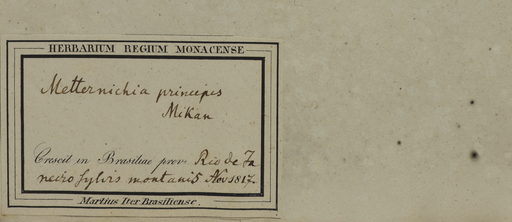 HERBARIUM REGIUM MONACENSE
Metternichia principis
Mikan
Crescit in Brasiliae prov. Rio de Ja
neiro sylvis montanis Nov 1817.
Martius Iter Brasiliense.